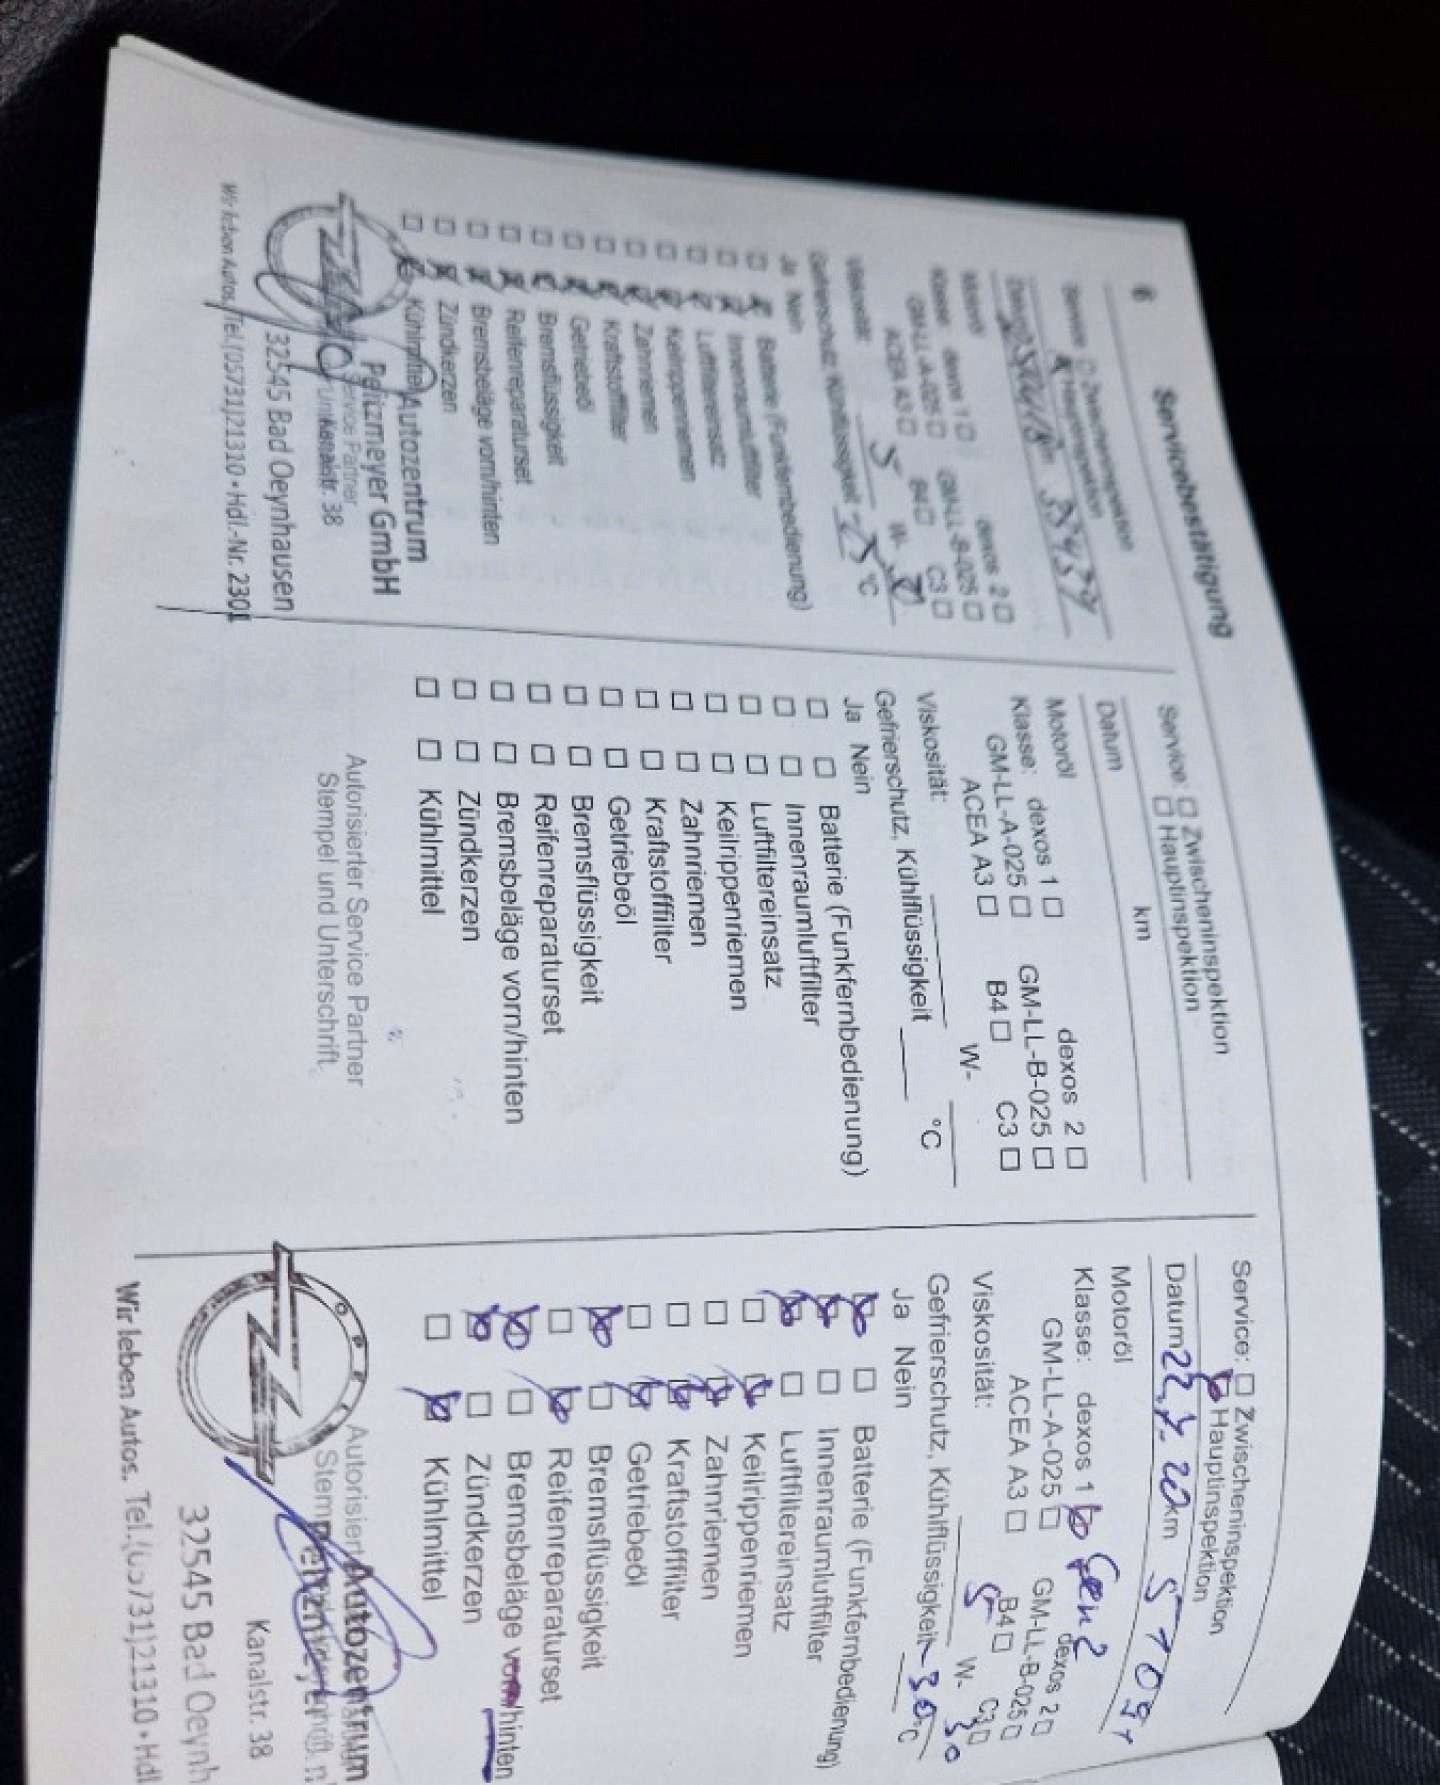 6
Servicebestätigung
Service □ Zwischeninspektion
Hauptinspektion
Datum
Motoröl
Klasse: dexos 1 □ dexos 2 □
GM-LL-A-025 □ GM-LL-B-025 □
ACEA A3 □ B4 □ C3 □
Viskosität: 5 W-
Gefrierschutz, Kühlflüssigkeit -25 °C
Ja Nein
Batterie (Funkfernbedienung)
Innenraumluftfilter
Luftfiltereinsatz
Keilrippenriemen
Zahnriemen
Kraftstofffilter
Getriebeöl
Bremsflüssigkeit
Reifenreparaturset
Bremsbeläge vorn/hinten
Zündkerzen
Kühlmittel
Autozentrum
Pelitzmeyer GmbH
Service Partner
Kanalstr. 38
32545 Bad Oeynhausen
Wir leben Autos. Tel.(05731)21310 • Hdl.-Nr. 2301
Service: □ Zwischeninspektion
□ Hauptinspektion
Datum km
Motoröl
Klasse: dexos 1 □ dexos 2 □
GM-LL-A-025 □ GM-LL-B-025 □
ACEA A3 □ B4 □ C3 □
Viskosität: W-
Gefrierschutz, Kühlflüssigkeit °C
Ja Nein
□ □ Batterie (Funkfernbedienung)
□ □ Innenraumluftfilter
□ □ Luftfiltereinsatz
□ □ Keilrippenriemen
□ □ Zahnriemen
□ □ Kraftstofffilter
□ □ Getriebeöl
□ □ Bremsflüssigkeit
□ □ Reifenreparaturset
□ □ Bremsbeläge vorn/hinten
□ □ Zündkerzen
□ □ Kühlmittel
Autorisierter Service Partner
Stempel und Unterschrift
Service: □ Zwischeninspektion
Hauptinspektion
Datum 22.7.20 km
Motoröl
Klasse: dexos 1 Gen2 dexos 2 □
GM-LL-A-025 □ GM-LL-B-025 □
ACEA A3 □ B4 □ C3 □
Viskosität: 5 W- 30
Gefrierschutz, Kühlflüssigkeit -30 °C
Ja Nein
Batterie (Funkfernbedienung)
Innenraumluftfilter
Luftfiltereinsatz
Keilrippenriemen
Zahnriemen
Kraftstofffilter
Getriebeöl
Bremsflüssigkeit
Reifenreparaturset
Bremsbeläge vorn/hinten
Zündkerzen
Kühlmittel
OPEL
Autorisiert
Autozentrum
Kanalstr. 38
32545 Bad Oeynh
Wir leben Autos. Tel.(05731)21310 • Hdl